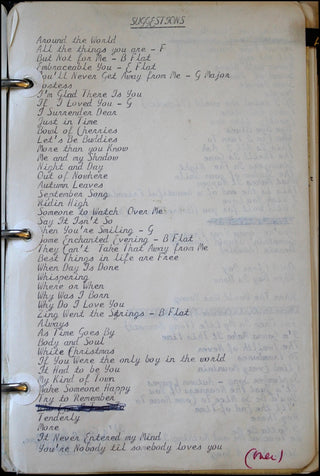 SUGGESTIONS
Around the World
All the things you are - F
But Not for Me - B Flat
Embraceable You - E Flat
You'll Never Get Away from Me - G Major
Hostess
I'm Glad There Is You
If I Loved You - G
I Surrender Dear
Just in Time
Bowl of Cherries
Let's Be Buddies
More than you Know
Me and my Shadow
Night and Day
Out of Nowhere
Autumn Leaves
September Song
Ridin High
Someone to Watch Over Me
Say It Isn't So
When You're Smiling - G
Some Enchanted Evening - B Flat
They Can't Take That Away from Me
Best Things in life are Free
When Day Is Done
Whispering
Where or When
Why Was I Born
Why Do I Love You
Zing Went the Strings - B Flat
Always
As Time Goes By
Body and Soul
White Christmas
If You Were the only boy in the world
It Had to be You
My Kind of Town
Make Someone Happy
Try to Remember
Tenderly
More
It Never Entered my Mind
You're Nobody til somebody loves you
(over)